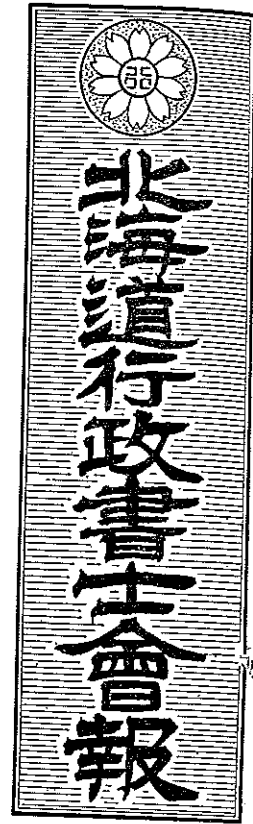 北海道行政書士會報